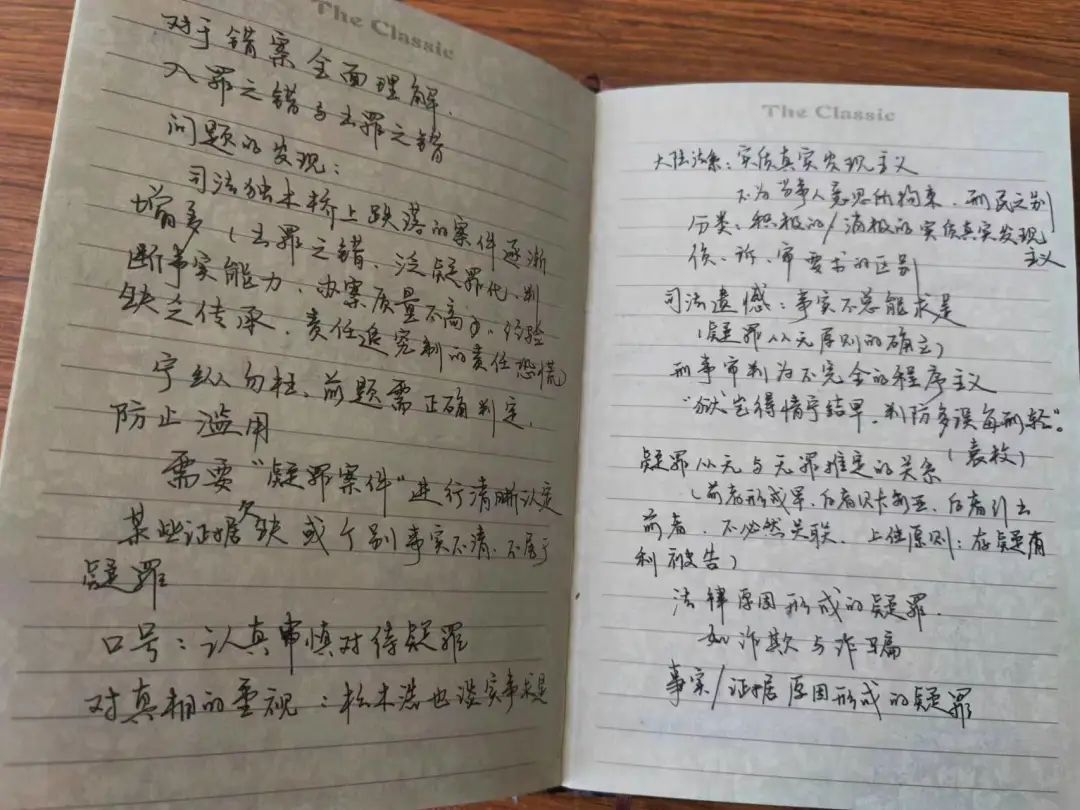 The Classic
对于错案全面理解.
入罪之错与出罪之错
问题的发现:
司法独木桥上跌落的案件逐渐
增多(出罪之错、泛疑罪化、判
断事实能力、办案质量不高、经验
缺乏传承、责任追究制的责任恐慌)
宁纵勿枉、前题需正确判定.
防止滥用
需要"疑罪案件"进行清晰认定
某些证据欠缺或个别事实不清、不属于
疑罪
口号:认真审慎对待疑罪
对真相的重视:松木浩也谈实事求是
The Classic
大陆法系:实质真实发现主义
不为当事人意思所拘束、刑民之别
分类:积极的/消极的实质真实发现
主义
侦、诉、审要求的区别
司法遗憾:事实不总能求是
(疑罪从无原则的确立)
刑事审判为不完全的程序主义
"狱岂得情宁结早,判防多误每刑轻"。
(袁枚)
疑罪从无与无罪推定的关系
(前者形成早、后者贝卡利亚、后者引出
前者、不必然关联、上位原则:存疑有
利被告)
法律原因形成的疑罪.
如诈欺与诈骗
事实/证据原因形成的疑罪